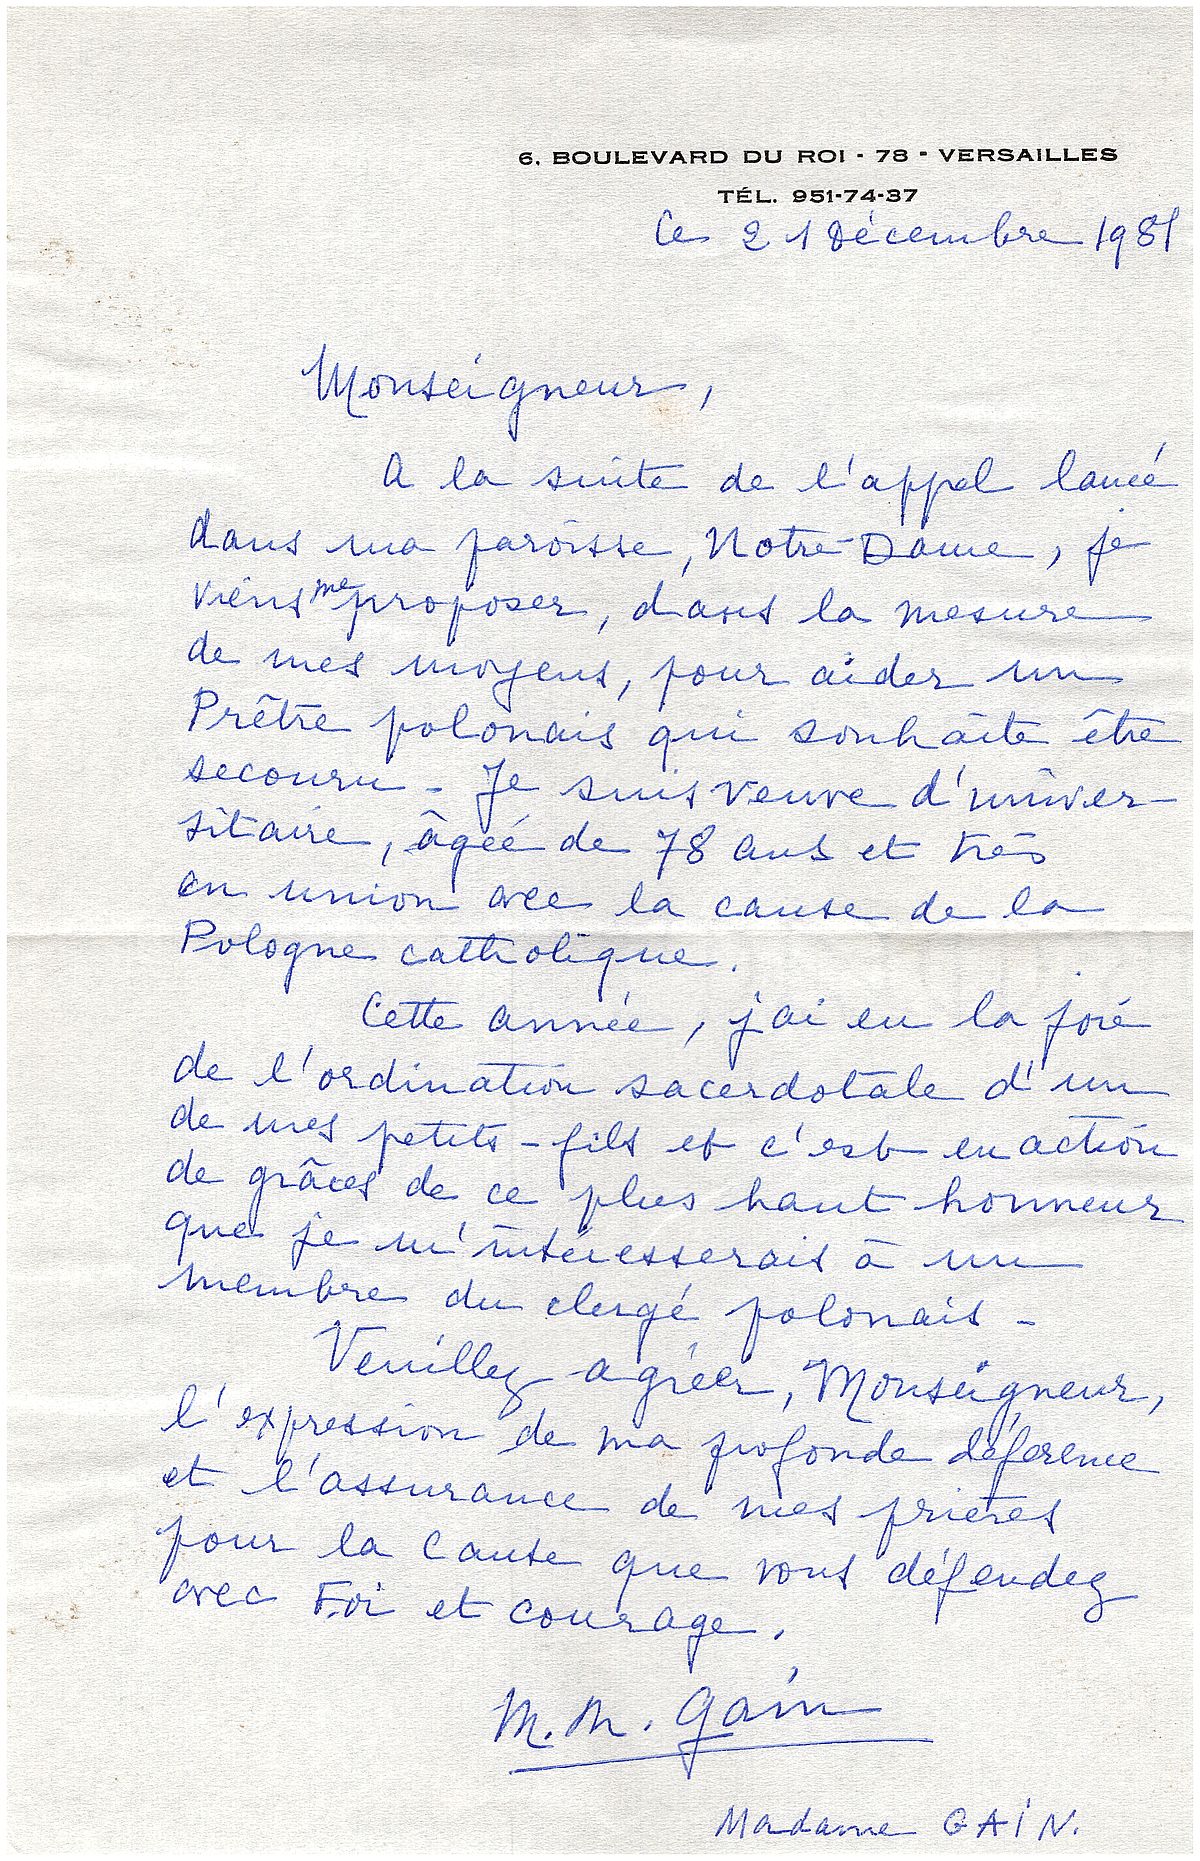 6. BOULEVARD DU ROI - 78 - VERSAILLES
TÉL. 951-74-37
Ce 21 Décembre 1981
Monseigneur,
A la suite de l'appel lancé
dans ma paroisse, Notre-Dame, je
viens me proposer, dans la mesure
de mes moyens, pour aider un
Prêtre polonais qui souhaite être
secouru - Je suis veuve d'univer-
sitaire, âgée de 78 ans et très
en union avec la cause de la
Pologne catholique.
Cette année, j'ai eu la joie
de l'ordination sacerdotale d'un
de mes petits-fils et c'est en action
de grâces de ce plus haut honneur
que je m'intéresserais à un
membre du clergé polonais -
Veuillez agréer, Monseigneur,
l'expression de ma profonde déférence
et l'assurance de mes prières
pour la Cause que vous défendez
avec Foi et courage.
M. M. Gain
Madame GAIN.